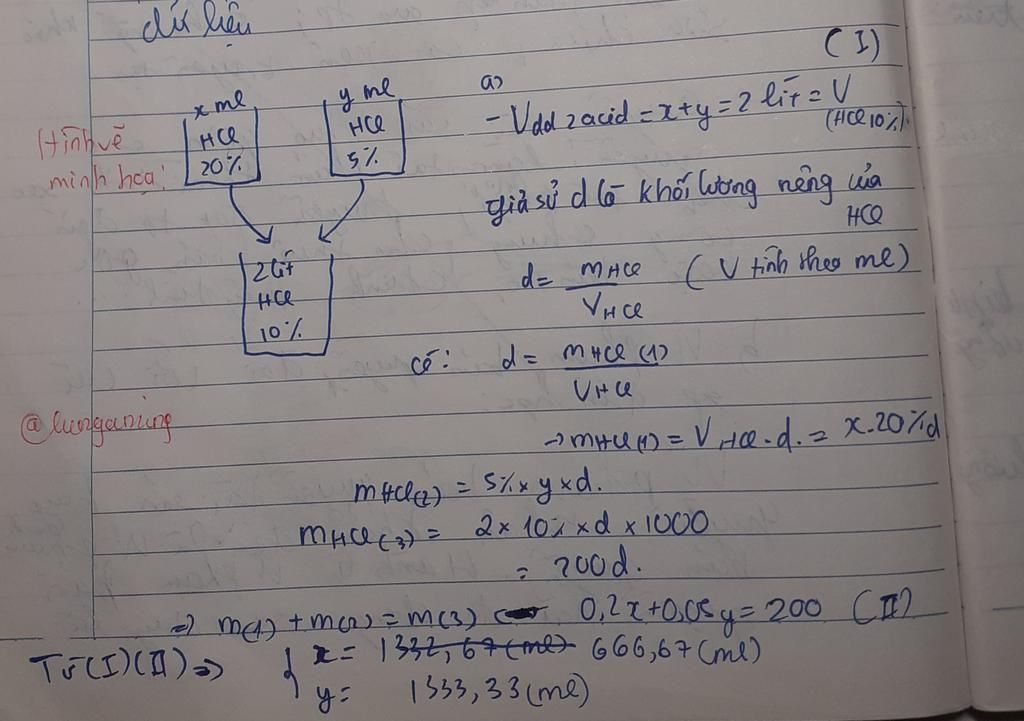 dữ liệu
(I)
x ml
HCl
20%
y ml
HCl
5%
Hình vẽ
minh họa:
2 lít
HCl
10%
a)
- Vdd 2 acid = x + y = 2 lít = V
(HCl 10%).
giả sử d là khối lượng riêng của
HCl
d = mHCl / VHCl ( V tính theo ml)
có: d = mHCl (1) / VHCl
@lunganung
→ mHCl(1) = VHCl . d. = x.20%d
mHCl(2) = 5% x y x d.
mHCl(3) = 2 x 10% x d x 1000
= 200d.
=> m(1) + m(2) = m(3) 0,2x + 0,05y = 200 (II)
Từ (I)(II) => { x = 1332,67(ml) 666,67(ml)
y = 1333,33(ml)